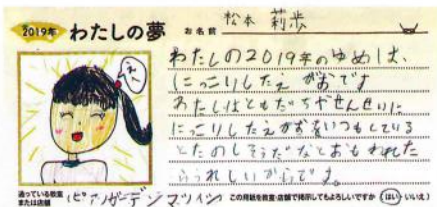 2019年 わたしの夢 お名前 松本 莉歩
えへ
わたしの2019年のゆめは、
にっこりしたえがおです
わたしはともだちやせんせいに
にっこりしたえがおをいつもしている
とたのしそうだなとおもわれた
らうれしいからです。
通っている教室
または店舗 (ピアノガーデンマツイシ
この用紙を教室・店舗で掲示してもよろしいですか (はい・いいえ)